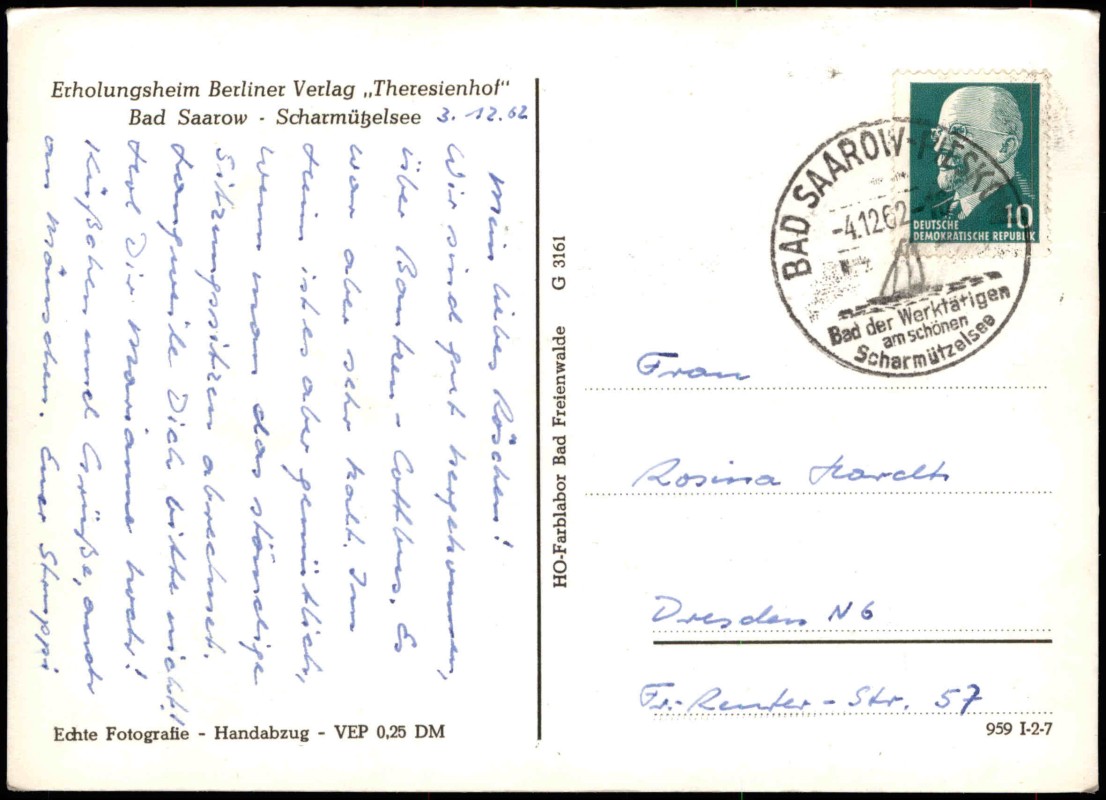 Erholungsheim Berliner Verlag „Theresienhof“
Bad Saarow - Scharmützelsee
3.12.62
Mein liebes Röschen!
Wir sind gut hergekommen,
über Bautzen - Cottbus. Es
war aber sehr kalt. Im
Heim ist es aber gemütlich,
wenn man das ständige
Sitzungssitzen abrechnet.
Langweile Dich bitte nicht!
Heul Dir Mariann hoch!
Küßchen und Grüße, auch
an Mäuschen. Euer Struppi
Echte Fotografie - Handabzug - VEP 0,25 DM
HO-Farblabor Bad Freienwalde G 3161
BAD SAAROW-PIESKOW
-4.12.62
Bad der Werktätigen
am schönen
Scharmützelsee
10
DEUTSCHE
DEMOKRATISCHE REPUBLIK
Frau
Rosina Hardth
Dresden N6
Fr.-Reuter-Str. 57
959 I-2-7